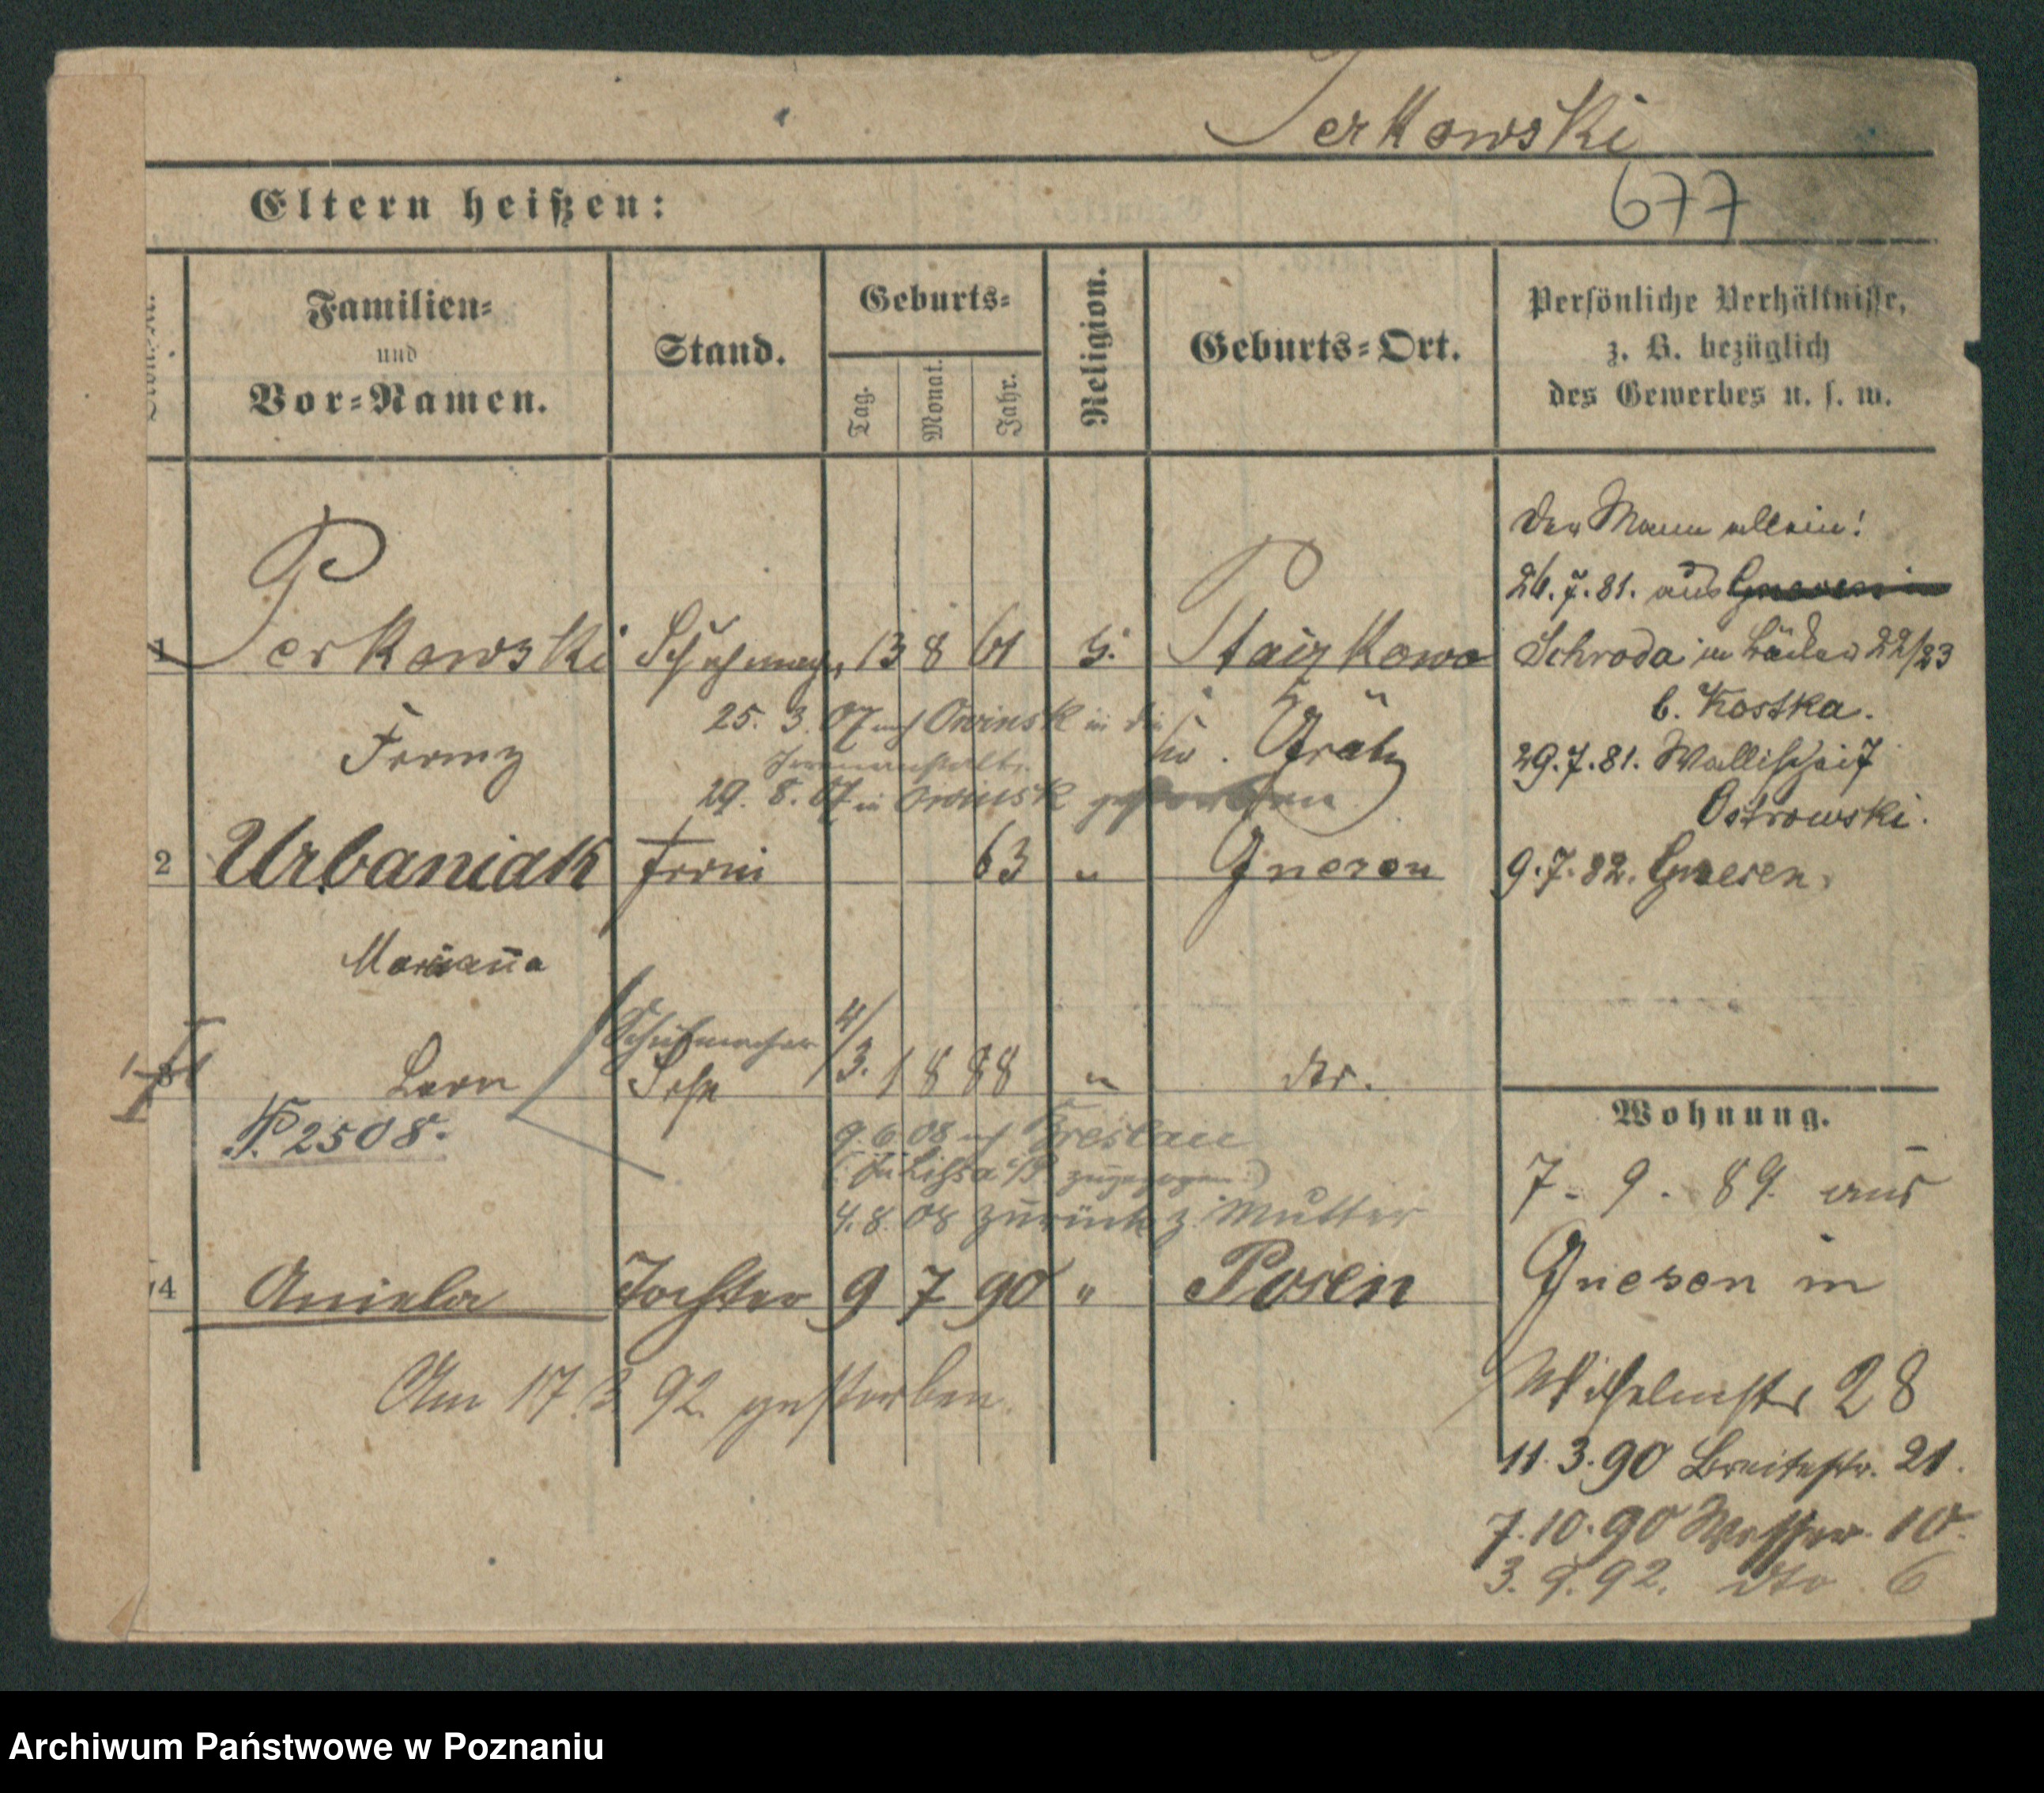 Perkowski
677
Eltern heißen:
Familien-
und
Vor-Namen.
Stand.
Geburts-
Tag.
Monat.
Jahr.
Religion.
Geburts-Ort.
Persönliche Verhältnisse,
z. B. bezüglich
des Gewerbes u. s. w.
1 Perkowski 13 8 61
Franz
Kr. Grätz
25. 3. 07 nach Owinsk in die
Irrenanstalt.
29. 8. 07 in Owinsk gestorben
Der Mann allein!
26.7.81. aus Gnesen in
Schroda in 22/23
b. Kostka.
29.7.81. Wallischei 7
Ostrowski.
9.7.82. Gnesen.
2 Urbaniak Frau 63 " Gnesen
Marianna
Schuhmacher
Leon Sohn 88 " do.
P. 2508.
9.6.08 nach Breslau
(. Lissa i/P. zugezogen .)
4.8.08 zurück z. Mutter
4 Aniela Tochter 9 7 90 " Posen
Am 17. 3. 92 gestorben.
Wohnung.
7. 9. 89. aus
Gnesen in
Wilhelmstr 28
11.3.90 Breitestr. 21.
7.10.90 10.
3. 9. 92. dto 6
Archiwum Państwowe w Poznaniu